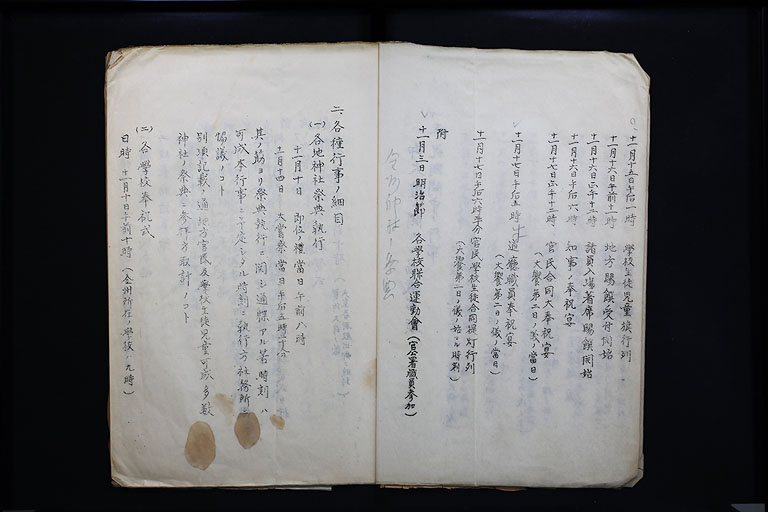 十一月十五日午后一時 學校生徒児童旗行列
十一月十六日午前十一時 地方賜饌受付開始
十一月十六日正午十二時 諸員入場著席賜饌開始
十一月十六日午后六時 知事ノ奉祝宴
十一月十七日正午十二時 官民合同大奉祝宴
(大饗第一日ノ儀ノ當日)
十一月十七日午后五時半 道廳職員奉祝宴
(大饗第一日ノ儀ノ當日)
十一月十七日午后六時半 官民學校生徒合同提灯行列
(大饗第一日ノ儀ノ始マル時刻)
附
十一月三日 明治節 各學校聯合運動會(官公署職員参加)
全州神社ノ祭典
二、各種行事ノ細目
(一)各地神社祭典執行
十一月十日 即位ノ禮當日午前八時
十一月十四日 大嘗祭當日午后五時
其ノ筋ヨリ祭典執行ニ関シ通牒アル筈時刻ハ
可成本行事ニ予定シタル時刻ニ執行方社務所ト
協議ノコト
別項記載ノ通地方官民及學校生徒児童可成多数
神社ノ祭典ニ参拝方取計ノコト
(二)各學校奉祝式
日時 十一月十日午前十時(全州所在ノ學校ハ九時)